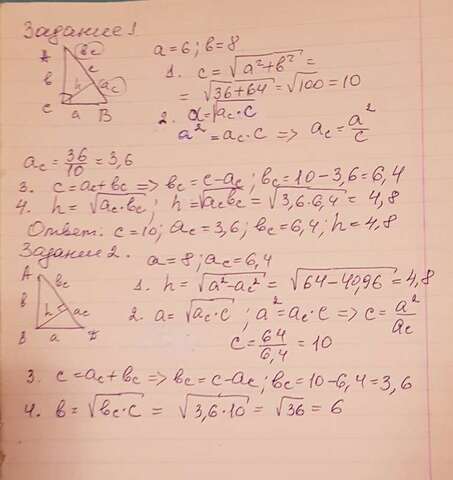 Задание 1
A
bc
c
b
h
ac
C
a
B
a=6; b=8
1. c = √a²+b² =
= √36+64 = √100 = 10
2. a = √ac·c
a² = ac·c => ac = a²/c
ac = 36/10 = 3,6
3. c = ac+bc => bc = c-ac; bc = 10-3,6 = 6,4
4. h = √ac·bc; h = √acbc = √3,6·6,4 = 4,8
Ответ: c=10; ac=3,6; bc=6,4; h=4,8
Задание 2.
A
bc
b
h
ac
B
a
a=8; ac=6,4
1. h = √a²-ac² = √64-40,96 = 4,8
2. a = √ac·c; a² = ac·c => c = a²/ac
c = 64/6,4 = 10
3. c = ac+bc => bc = c-ac; bc = 10-6,4 = 3,6
4. b = √bc·c = √3,6·10 = √36 = 6